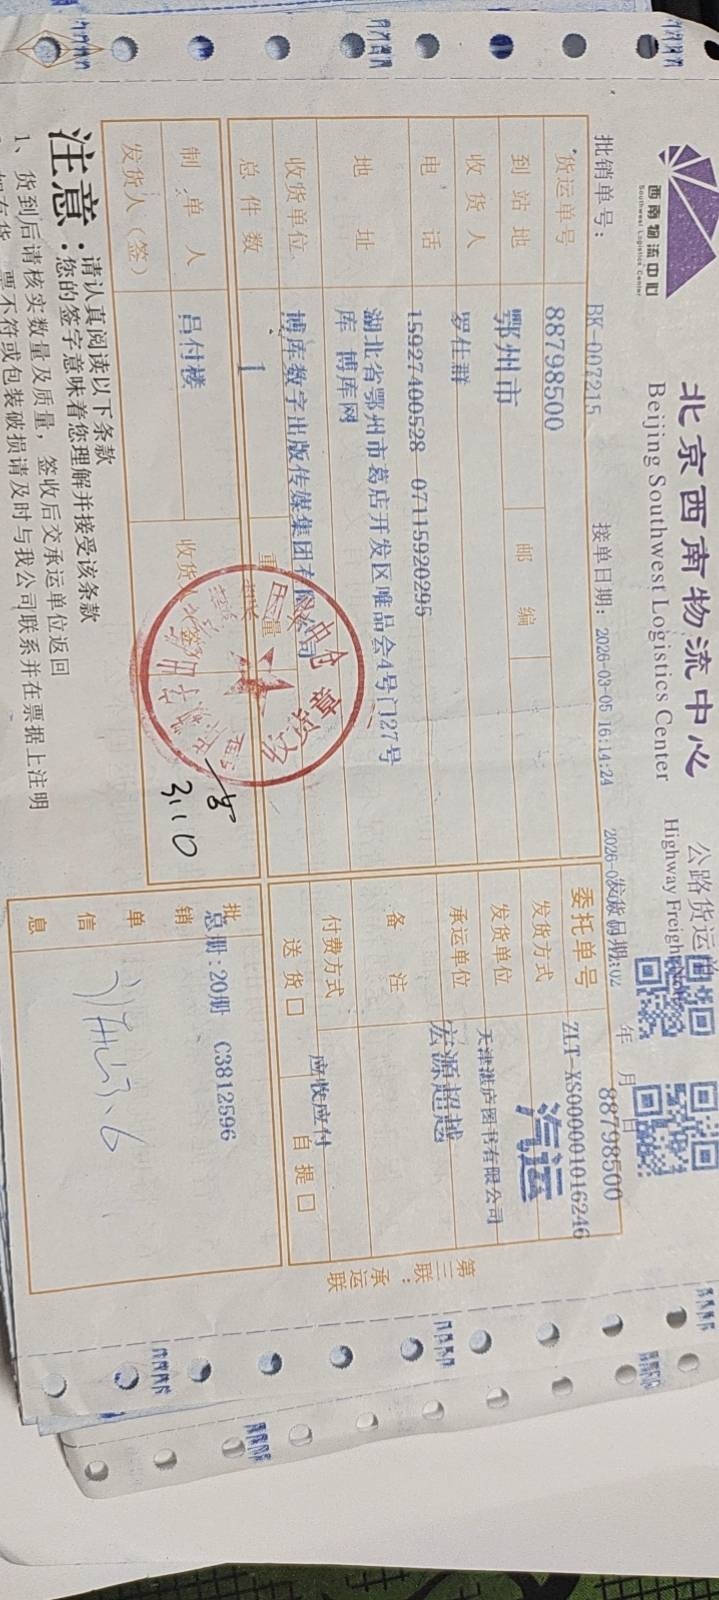 西南物流中心
Southwest Logistics Center
北京西南物流中心
Beijing Southwest Logistics Center
公路货运单
Highway Freight
批销单号: BK-007215
接单日期: 2026-03-05 16:14:24
发货日期:
年 月 日
88798500
货运单号 88798500
委托单号 ZLT-XS000001016246
到站地 鄂州市
邮编
发货方式 汽运
收货人 罗佳群
发货单位 天津湛庐图书有限公司
电话 15927400528 07115920295
承运单位 宏源超越
地址 湖北省鄂州市葛店开发区唯品会4号门27号
库 博库网
备注
收货单位 博库数字出版传媒集团有限公司
付费方式 应收应付
总件数 1
重量
送货口 自提口
制单人 吕付楼
收货人
收货章
3.10
发货人(签)
批销单信息
总册:20册 C3812596
3.6
第三联:承运联
注意:
请认真阅读以下条款
您的签字意味着您理解并接受该条款
1、货到后请核实数量及质量,签收后交承运单位返回
票不符或包装破损请及时与我公司联系并在票据上注明